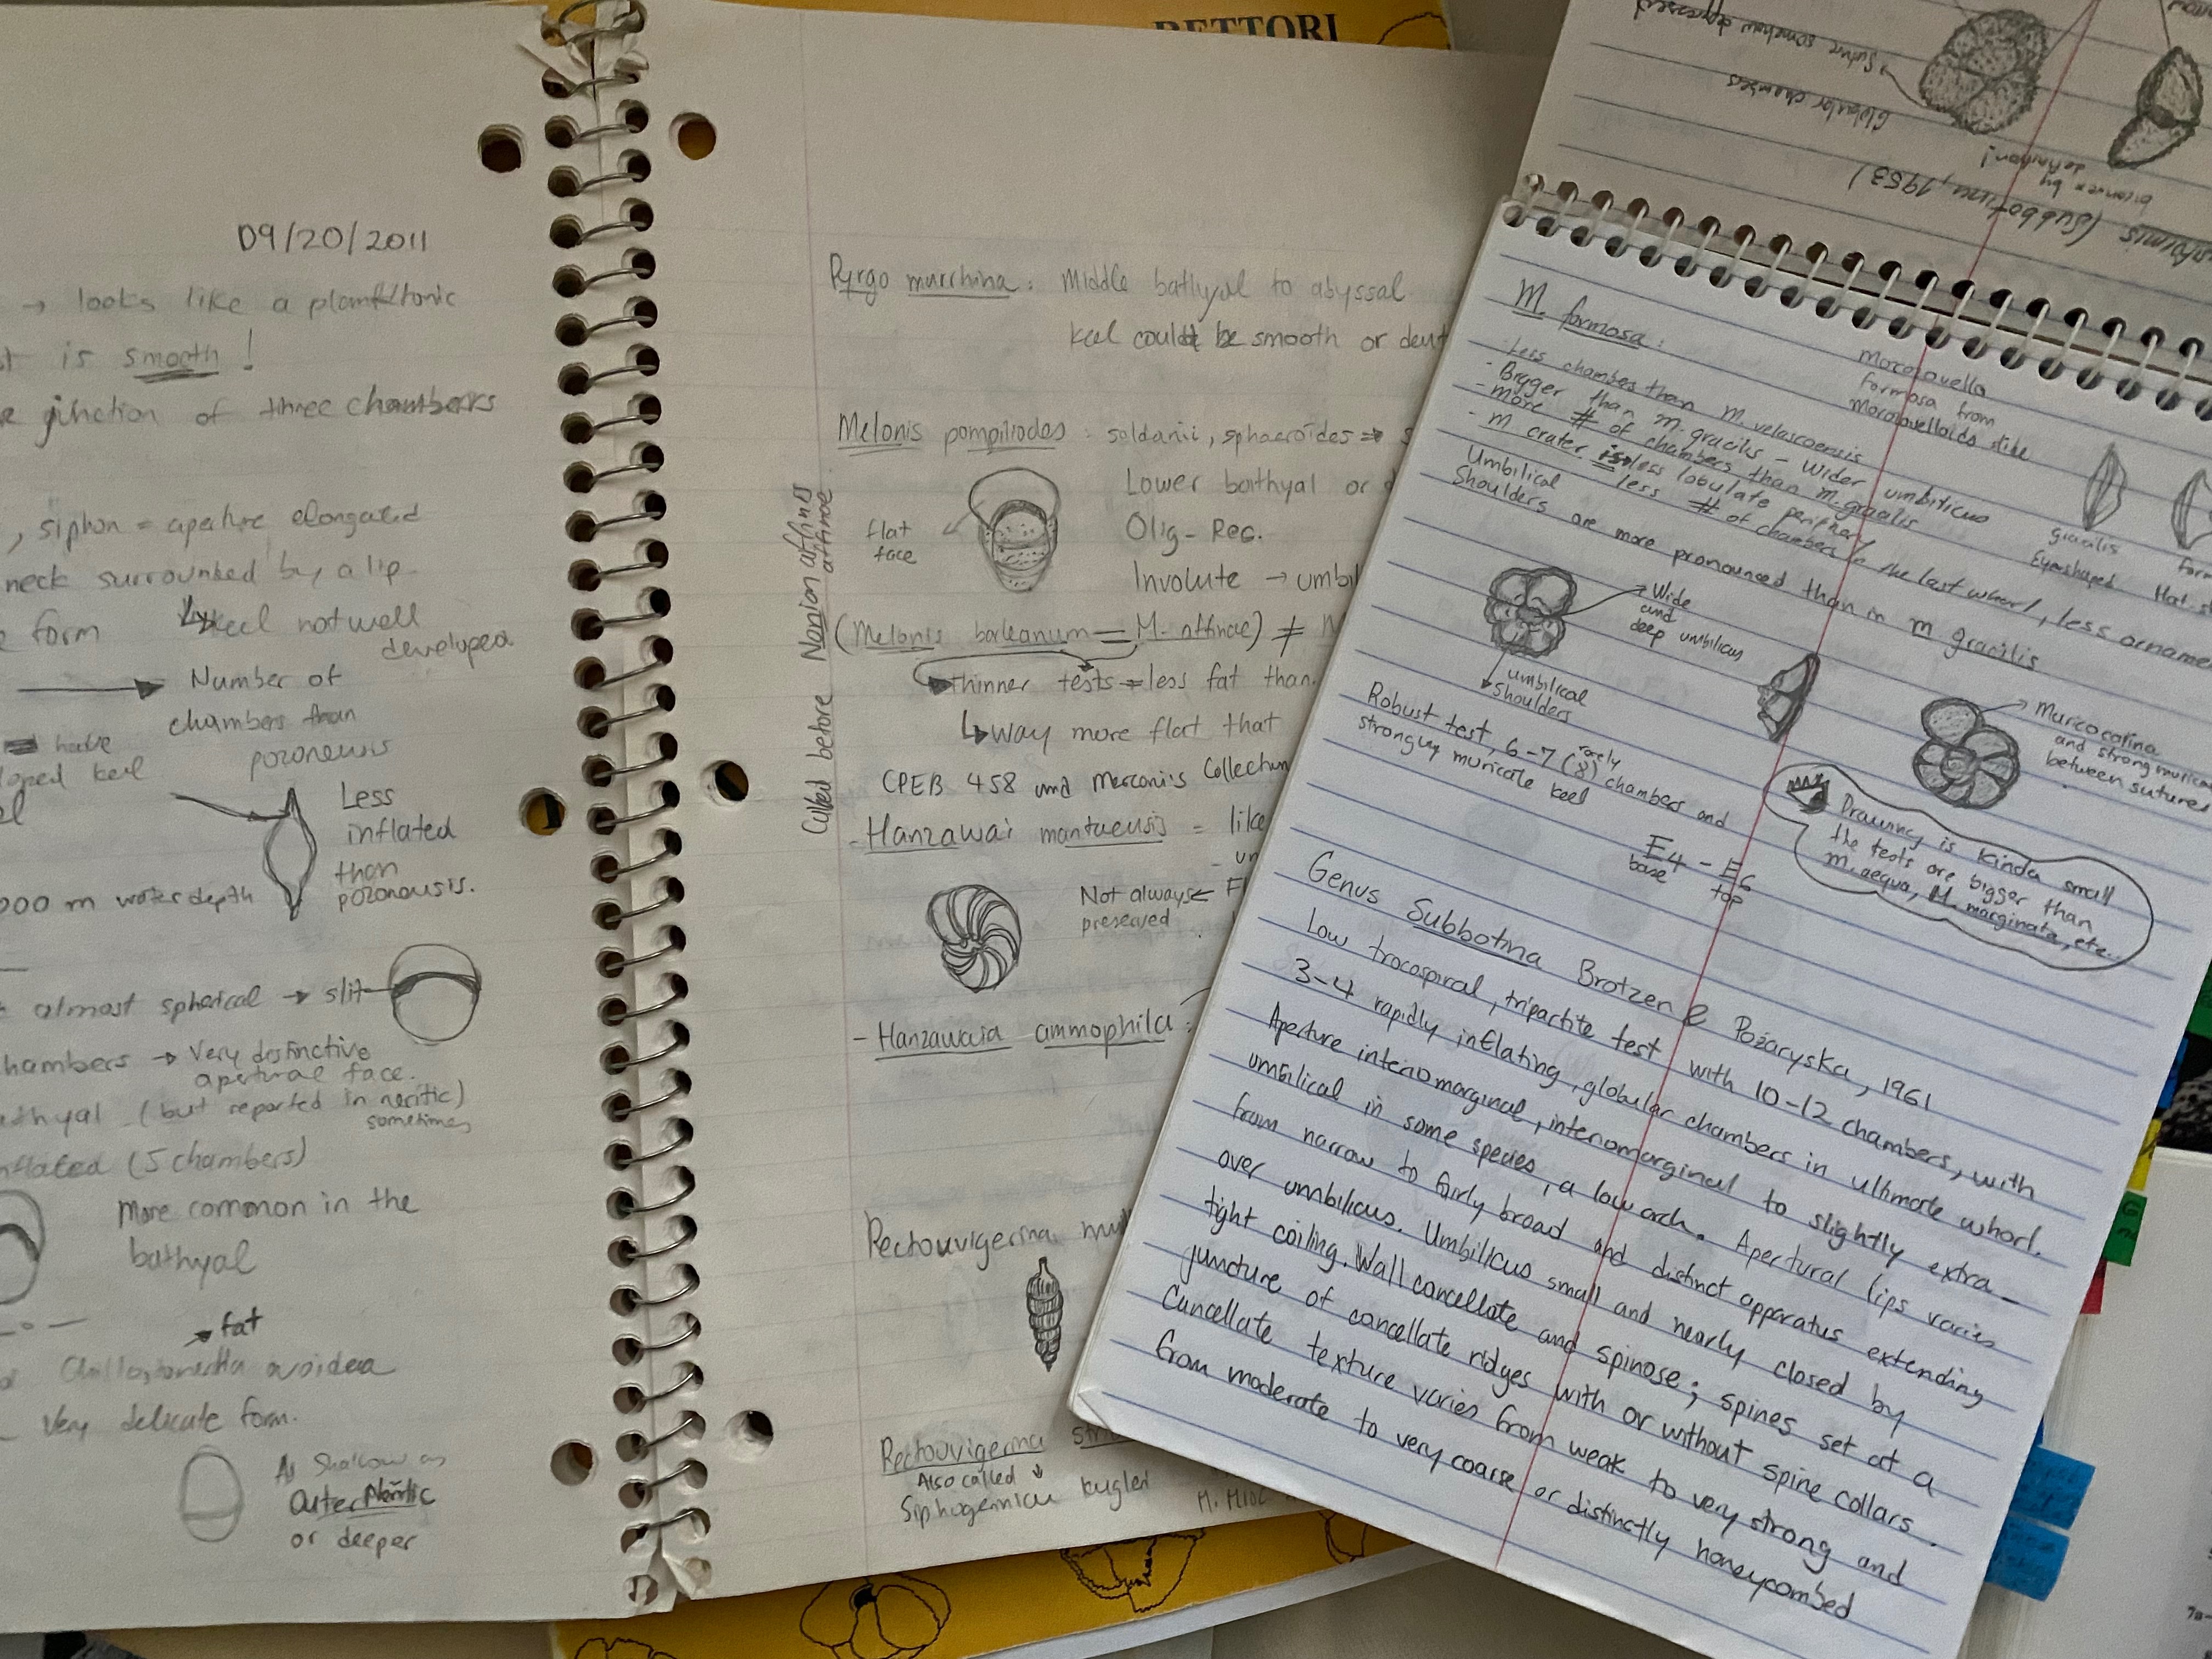 09/20/2011
→ looks like a planktonic
is smooth!
junction of three chambers
, siphon = aperture elongated
neck surrounded by a lip
form ↳ keel not well
developed
→ Number of
chambers than
pozonensis
have
loped keel
Less
inflated
than
pozonensis.
000 m water depth
almost spherical → slit
hambers → Very distinctive
apertural face.
athyal (but reported in neritic)
sometimes
nflated (5 chambers)
More common in the
bathyal
→ fat
ovoidea
Very delicate form.
As shallow as
Outer Neritic
or deeper
BETTORI
Pyrgo murrhina: Middle bathyal to abyssal
keel could be smooth or dent
Melonis pompiliodes: soldanii, sphaeroides ⇒ s
Lower bathyal or
flat
face
Olig - Rec.
Involute → umbil
Called before Nonion affines
affinae
(Melonis barleanum = M. affinae) ≠
Thinner tests = less fat than.
↳ way more flat that
CPEB 458 and Marconi's Collection
- Hanzawai mantaensis = like
un
Not always ← Fl
preserved
- Hanzawaia ammophila:
Rectouvigerina mul
Rectouvigerina str
Also called ↓
Siphogenina kugleri
M. Mioc
(Subbotina, 1953)
biconvex by
definition!
Globular chambers
Suture somehow depressed
M. formosa:
Morozovella
formosa from
Morozovelloids slide
- Less chambers than M. velascoensis
- Bigger than M. gracilis - Wider umbilicus
- more # of chambers than M. gracilis
- M crater is less lobulate periphery
less # of chambers in the last whorl, less orname
Umbilical
Shoulders are more pronounced than in M gracilis
gracilis
Eyeshaped
form
flat s
Wide
and
deep umbilicus
umbilical
shoulders
Muricocarina
and strong murica
between sutures
Robust test, 6-7 (rarely 8) chambers and
strongly muricate keel
E4 - E6
base top
Drawing is kinda small
the tests are bigger than
M. aequa, M. marginata, etc..
Genus Subbotina Brotzen & Pozaryska, 1961
Low trocospiral, tripartite test with 10-12 chambers, with
3-4 rapidly inflating, globular chambers in ultimate whorl.
Aperture interiomarginal, interiomarginal to slightly extra-
umbilical in some species, a low arch. Apertural lips varies
from narrow to fairly broad and distinct apparatus extending
over umbilicus. Umbilicus small and nearly closed by
tight coiling. Wall cancellate and spinose; spines set at a
juncture of cancellate ridges with or without spine collars.
Cancellate texture varies from weak to very strong and
from moderate to very coarse or distinctly honeycombed